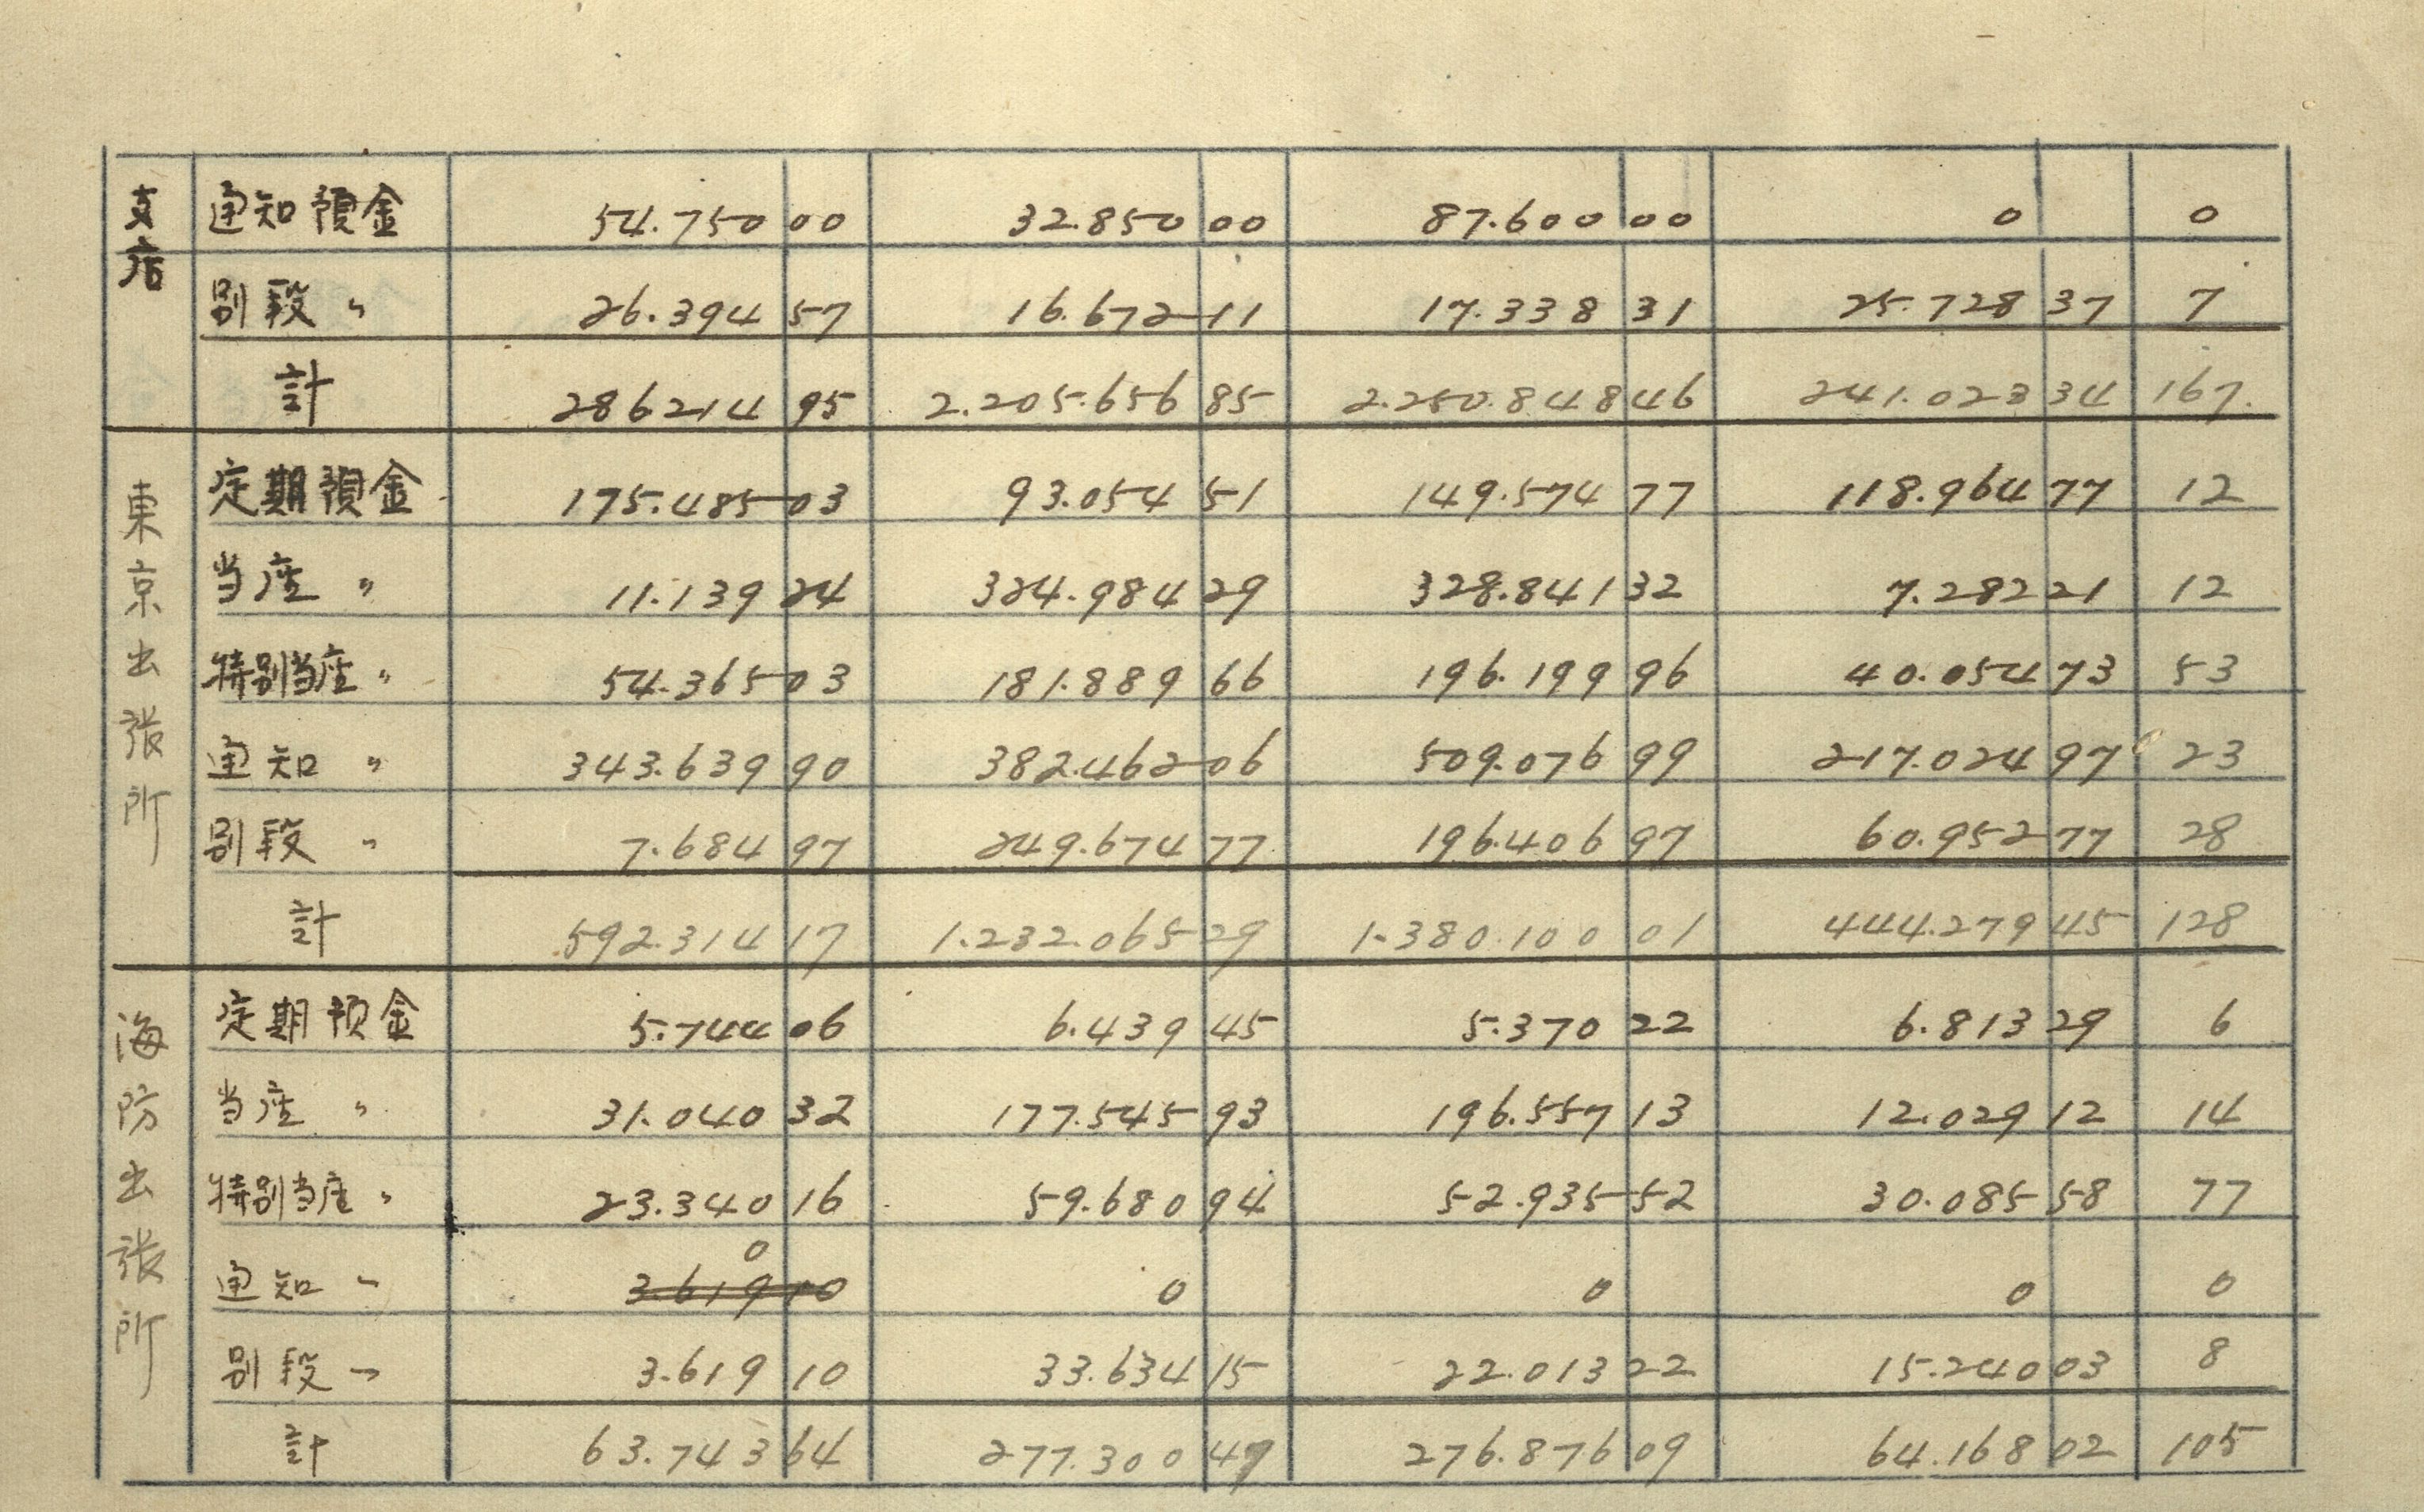 支店 通知預金 54.750 00 32.850 00 87.600 00 0 0
別段 〃 26.394 57 16.672 11 17.338 31 25.728 37 7
計 286214 95 2.205.656 85 2.250.848 46 241.023 34 167.
東京出張所 定期預金 175.485 03 93.054 51 149.574 77 118.964 77 12
当座 〃 11.139 24 324.984 29 328.841 32 7.282 21 12
特別当座 〃 54.365 03 181.889 66 196.199 96 40.054 73 53
通知 〃 343.639 90 382.462 06 509.076 99 217.024 97 23
別段 〃 7.684 97 249.674 77 196.406 97 60.952 77 28
計 592.314 17 1.232.065 29 1.380.100 01 444.279 45 128
海防出張所 定期預金 5.744 06 6.439 45 5.370 22 6.813 29 6
当座 〃 31.040 32 177.545 93 196.557 13 12.029 12 14
特別当座 〃 23.340 16 59.680 94 52.935 52 30.085 58 77
0
通知 〃 3.619 10 0 0 0 0
別段 〃 3.619 10 33.634 15 22.013 22 15.240 03 8
計 63.743 64 277.300 47 276.876 09 64.168 02 105